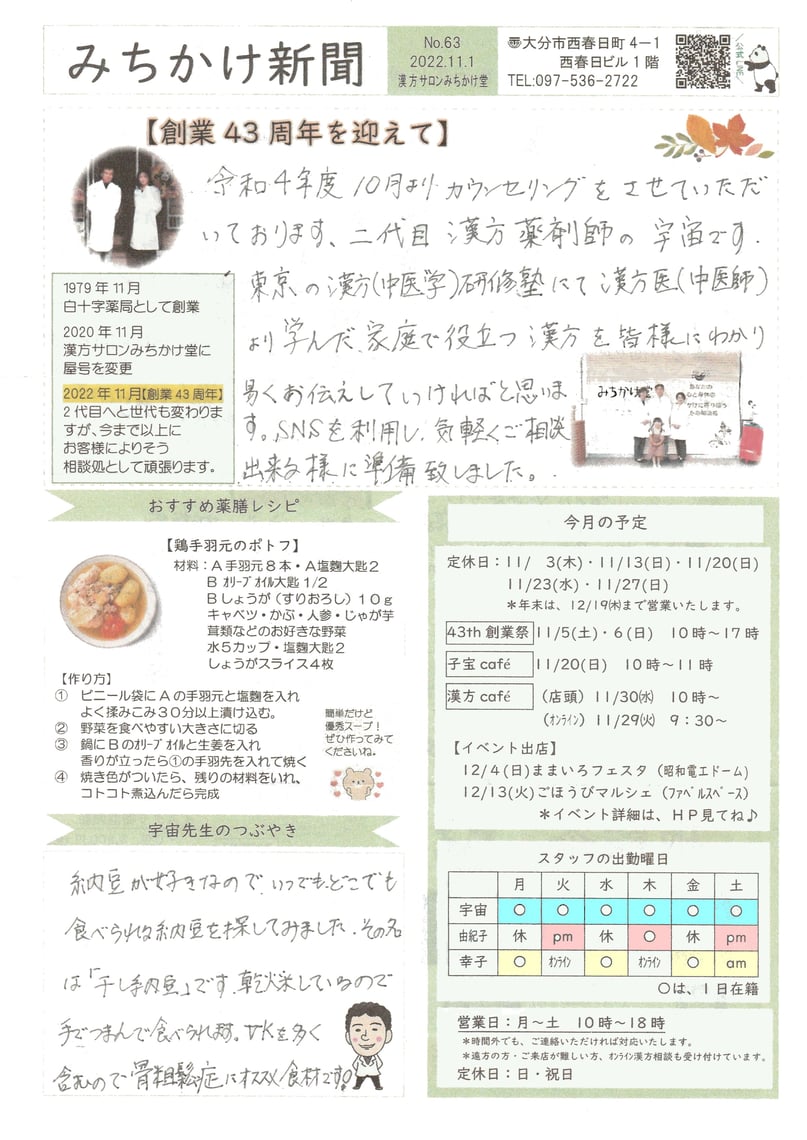 みちかけ新聞
No.63
2022.11.1
漢方サロンみちかけ堂
大分市西春日町4ー1
西春日ビル1階
TEL:097-536-2722
公式LINE
【創業43周年を迎えて】
令和4年度10月よりカウンセリングをさせていただ
いております、二代目漢方薬剤師の宇宙です.
東京の漢方(中医学)研修塾にて漢方医(中医師)
より学んだ、家庭で役立つ漢方を皆様にわかり
易くお伝えしていければと思いま
す。SNSを利用し、気軽くご相談
出来る様に準備致しました。
1979年11月
白十字薬局として創業
2020年11月
漢方サロンみちかけ堂に
屋号を変更
2022年11月【創業43周年】
2代目へと世代も変わりま
すが、今まで以上に
お客様によりそう
相談処として頑張ります。
みちかけ堂
おすすめ薬膳レシピ
【鶏手羽元のポトフ】
材料：A手羽元8本・A塩麴大匙2
B ｵﾘｰﾌﾞｵｲﾙ大匙1/2
Bしょうが（すりおろし）10g
キャベツ・かぶ・人参・じゃが芋
茸類などのお好きな野菜
水5カップ・塩麴大匙2
しょうがスライス4枚
【作り方】
① ビニール袋にAの手羽元と塩麴を入れ
よく揉みこみ30分以上漬け込む。
② 野菜を食べやすい大きさに切る
③ 鍋にBのｵﾘｰﾌﾞｵｲﾙと生姜を入れ
香りが立ったら①の手羽先を入れて焼く
④ 焼き色がついたら、残りの材料をいれ、
コトコト煮込んだら完成
簡単だけど
優秀スープ！
ぜひ作ってみて
くださいね。
宇宙先生のつぶやき
納豆が好きなので、いつでも、どこでも
食べられる納豆を探してみました.その名
は「干し納豆」です.乾燥しているので
手でつまんで食べられます。VKを多く
含むので骨粗鬆症にオススメ食材です!
今月の予定
定休日：11/ 3(木)・11/13(日)・11/20(日)
11/23(水)・11/27(日)
＊年末は、12/19㈭まで営業いたします。
43th創業祭 11/5(土)・6(日) 10時～17時
子宝café 11/20(日) 10時～11時
漢方café （店頭）11/30㈬ 10時～
（ｵﾝﾗｲﾝ）11/29㈫ 9：30～
【イベント出店】
12/4(日)ままいろフェスタ（昭和電工ドーム）
12/13(火)ごほうびマルシェ（ﾌｧﾍﾞﾙｽﾍﾟｰｽ）
＊イベント詳細は、HP見てね♪
スタッフの出勤曜日
月 火 水 木 金 土
宇宙 ○ ○ ○ ○ ○ ○
由紀子 休 pm 休 ○ 休 pm
幸子 ○ ｵﾝﾗｲﾝ ○ ｵﾝﾗｲﾝ ○ am
○は、1日在籍
営業日：月～土 10時～18時
＊時間外でも、ご連絡いただければ対応いたします。
＊遠方の方・ご来店が難しい方、ｵﾝﾗｲﾝ漢方相談も受け付けています。
定休日：日・祝日